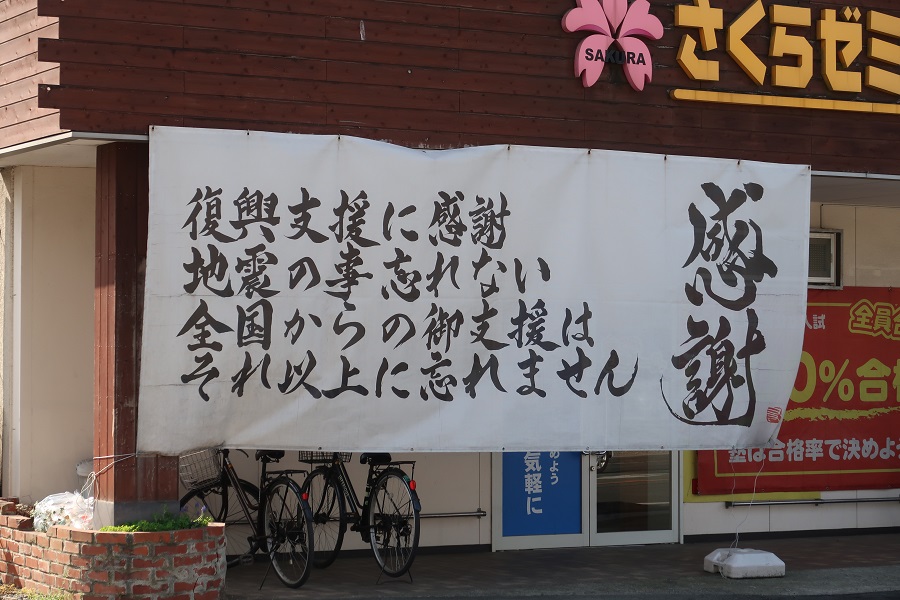 SAKURA
さくらゼミ
復興支援に感謝
地震の事忘れない
全国からの御支援は
それ以上に忘れません
感謝
入試
全員
0%合格
塾は合格率で決めよう
めよう
気軽に